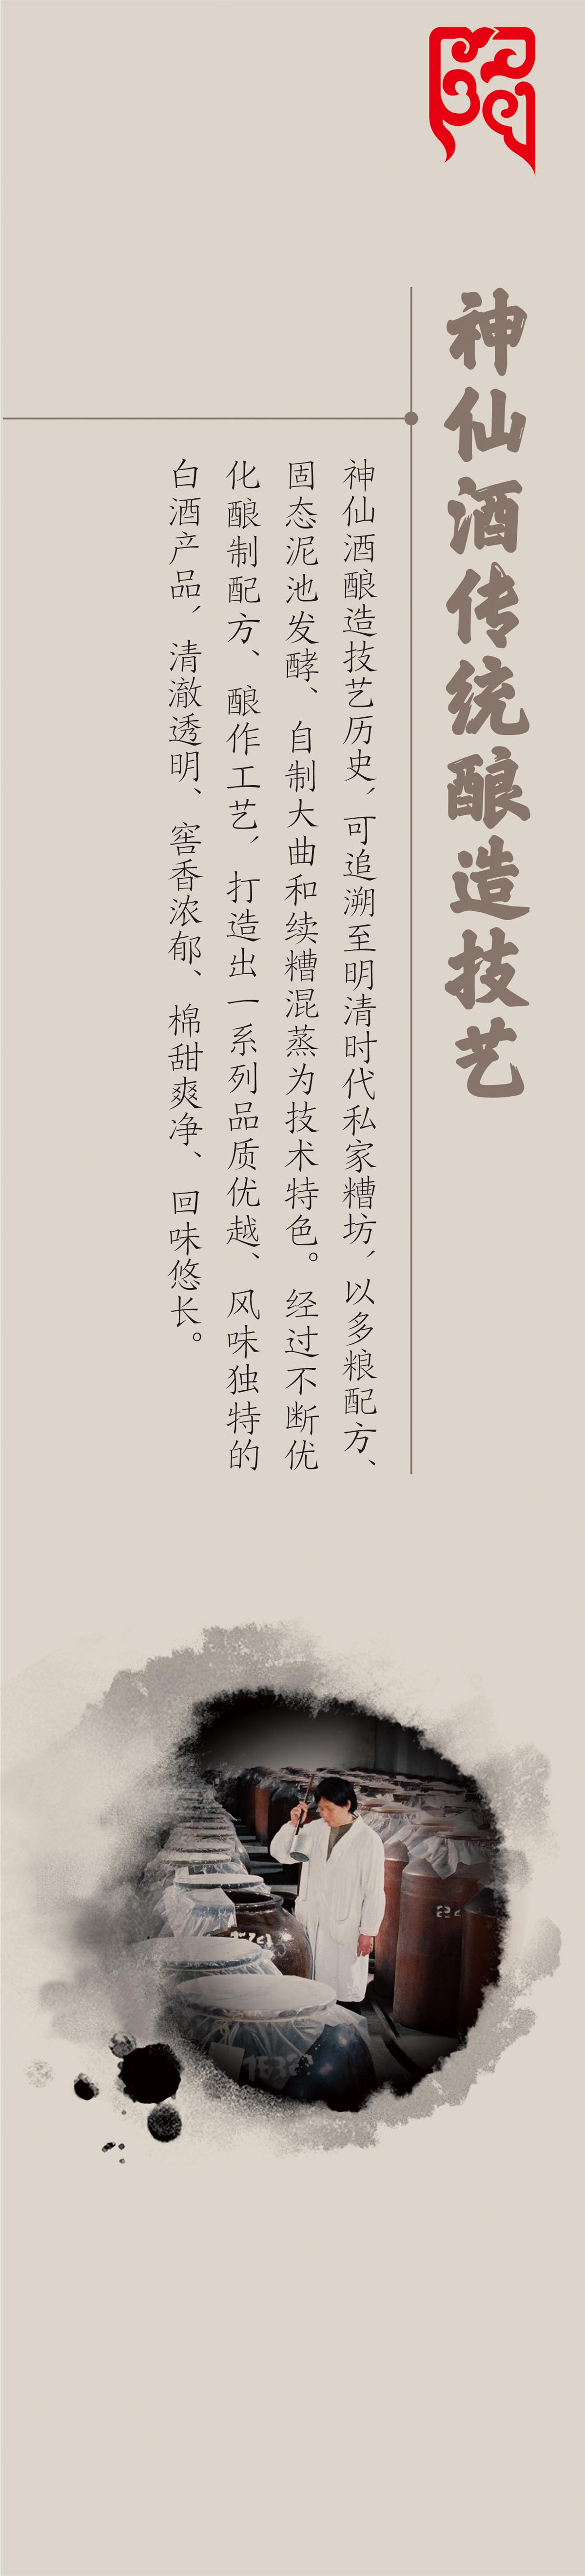 神仙酒传统酿造技艺
神仙酒酿造技艺历史，可追溯至明清时代私家糟坊，以多粮配方、
固态泥池发酵、自制大曲和续糟混蒸为技术特色。经过不断优
化酿制配方、酿作工艺，打造出一系列品质优越、风味独特的
白酒产品，清澈透明、窖香浓郁、棉甜爽净、回味悠长。